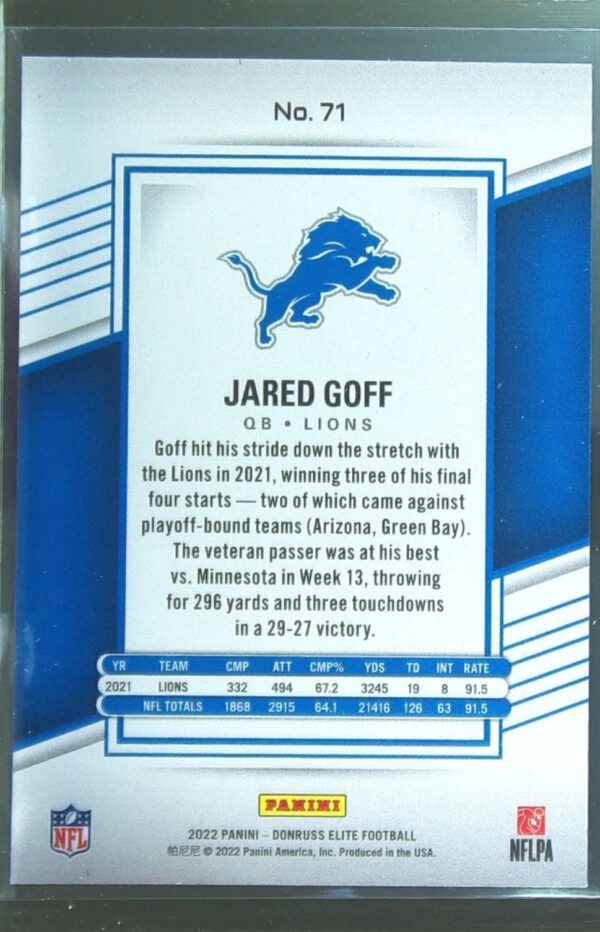 No. 71
JARED GOFF
QB • LIONS
Goff hit his stride down the stretch with
the Lions in 2021, winning three of his final
four starts — two of which came against
playoff-bound teams (Arizona, Green Bay).
The veteran passer was at his best
vs. Minnesota in Week 13, throwing
for 296 yards and three touchdowns
in a 29-27 victory.
YR TEAM CMP ATT CMP% YDS TD INT RATE
2021 LIONS 332 494 67.2 3245 19 8 91.5
NFL TOTALS 1868 2915 64.1 21416 126 63 91.5
PANINI
2022 PANINI – DONRUSS ELITE FOOTBALL
帕尼尼 © 2022 Panini America, Inc. Produced in the USA.
NFL
NFLPA